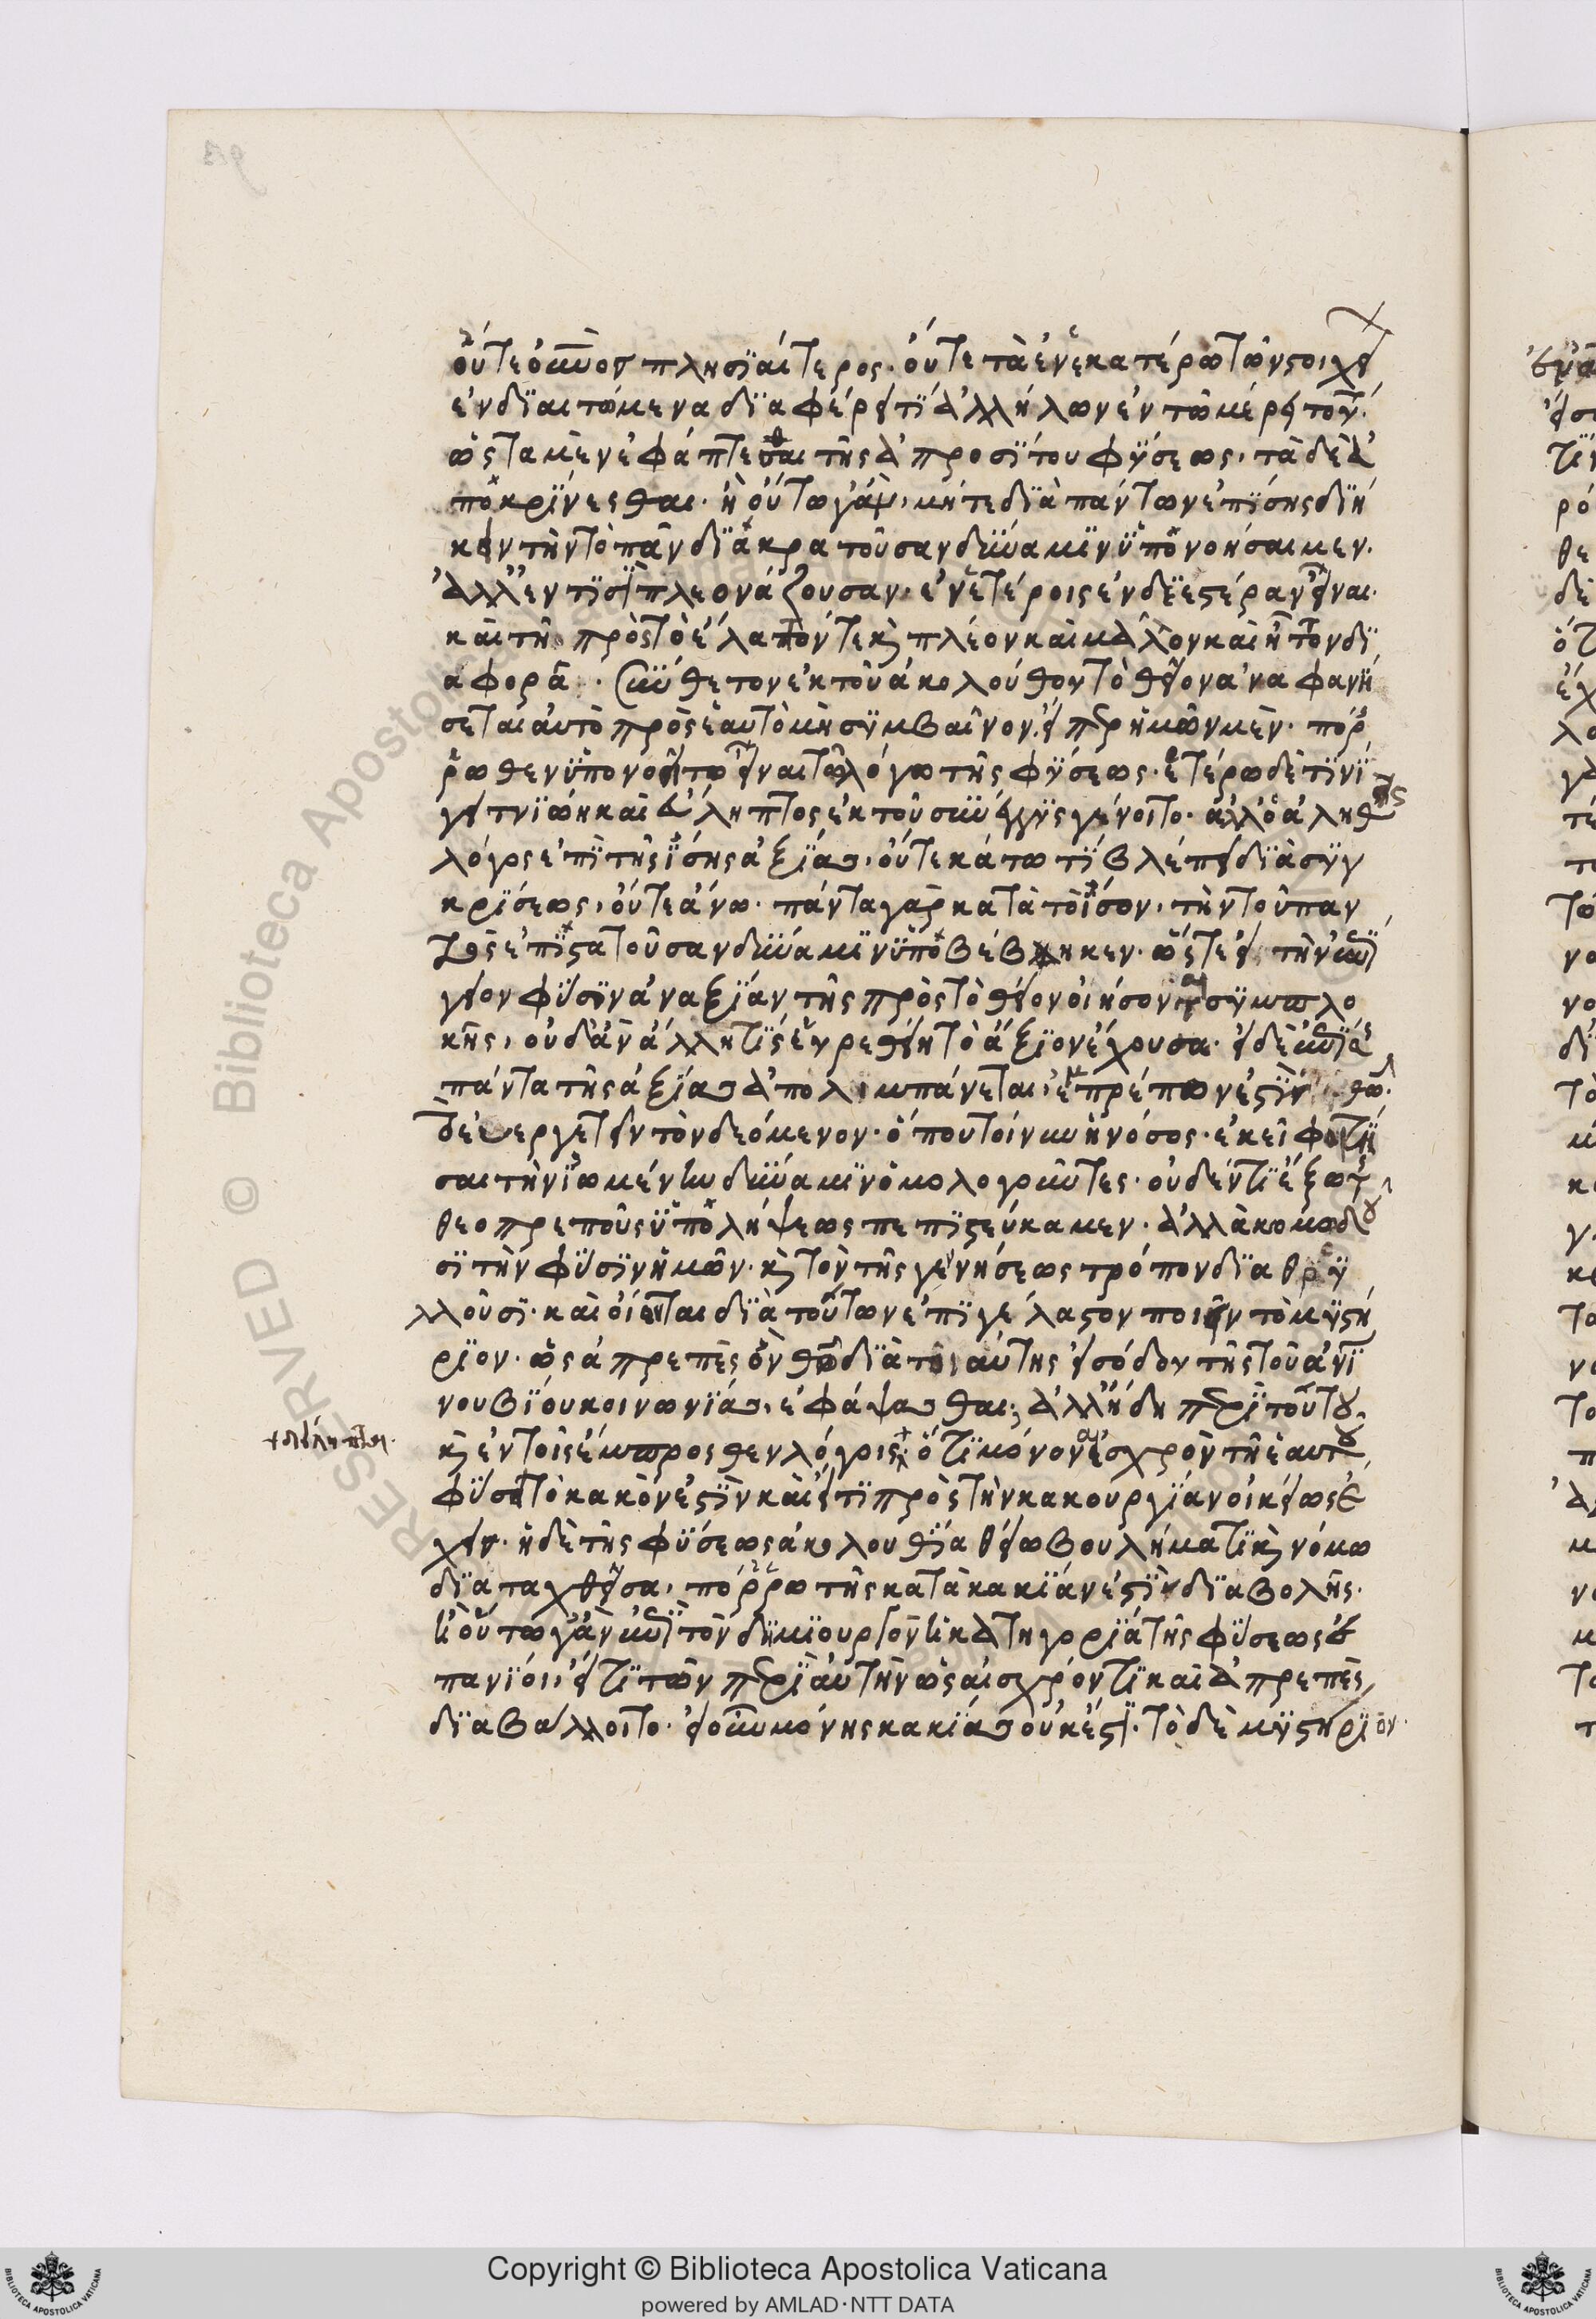 οὔτε ὁ κύων πλησιαίτερος. οὔτε τὰ ἐν ἑκατέρω τῶν στοιχεί
ἐνδιαιτώμενα διαφέρει τί ἀλλήλων ἐν τῶ μέρει τού
ὥς τα μὲν ἐφάπτεσθαι τῆς ἀπροσίτου φύσεως, τὰ δὲ ἀ
ποκρίνεσθαι. ἢ οὕτω γἂν, μήτε διὰ πάντων ἐπίσης διή
κειν τὴν τὸ πᾶν διακρατοῦσαν δύναμιν ὑπονοήσαιμεν.
ἀλλ' ἐν τισὶ πλεονάζουσαν, ἐν ἑτέροις ἐνδεεστέραν εἶναι.
καὶ τῆ πρὸς τὸ ἔλαττόν τε καὶ πλέον καὶ μᾶλλον καὶ ἧττον δι
αφορᾶ. σύνθετον ἐκ τοῦ ἀκολούθου τὸ θεῖον ἀναφανή
σεται αὐτὸ πρὸς ἑαυτὸ μὴ συμβαῖνον. εἴπερ ἡμῶν μὲν. πόρ
ρωθεν ὑπονοοῖτω εἶναι τῶ λόγω τῆς φύσεως. ἑτέρω δὲ τινὶ
γειτνιώη καὶ εὔληπτος ἐκ τοῦ σύνεγγυς γένοιτο. ἀλλ' ὁ ἀληθὴς
λόγος ἐπὶ τῆς ἴσης ἀξίας, οὔτε κάτω τί βλέπει διὰ συγ
κρίσεως, οὔτε ἄνω. πάντα γὰρ κατὰ τὸ ἴσον, τὴν τοῦ παν
τὸς ἐπιστατοῦσαν δύναμιν ὑποβέβηκεν. ὥστε εἰ τὴν ἐπί
γειον φύσιν ἀναξίαν τῆς πρὸς τὸ θεῖον οἰήσονται συμπλο
κῆς, οὐδ' ἂν ἄλλη τὶς εὑρεθείη τὸ ἄξιον ἔχουσα. εἰ δὲ ἐπίσης
πάντα τῆς ἀξίας ἀπολιμπάνεται, ἓν πρέπον ἐστὶν θεῶ.
τὸ εὐεργετεῖν τὸν δεόμενον. ὅπου τοίνυν ἦν νόσος. ἐκεῖ φοιτῆ
σαι τὴν ἰωμένην δύναμιν ὁμολογοῦντες. οὐδέν τι ἔξω τῆς
θεοπρεποῦς ὑπολήψεως πεπιστεύκαμεν. ἀλλὰ κομωδοῦ
σι τὴν φύσιν ἡμῶν. καὶ τὸν τῆς γεννήσεως τρόπον διαθρυ
λλοῦσι. καὶ οἴονται διὰ τούτων ἐπιγέλαστον ποιεῖν τὸ μυστή
ριον. ὡς ἀπρεπὲς ὂν θεῶ διὰ τοιαύτης εἰσόδου τῆς τοῦ ἀνθρωπί
νου βίου κοινωνίας, ἐφάψασθαι; ἀλλ' ἤδη περὶ τούτου.
καὶ ἐν τοῖς ἔμπροσθεν λόγοις ὅτι μόνον αἰσχρὸν τῆ ἑαυτοῦ
φύσει τὸ κακόν ἐστὶν καὶ εἴ τι πρὸς τὴν κακουργίαν οἰκείως ἔ
χει. ἡ δὲ τῆς φύσεως ἀκολουθία θείω βουλήματι καὶ νόμω
διαταχθεῖσα, πόρρω τῆς κατὰ κακίαν ἐστὶν διαβολῆς.
ἢ οὕτω γἂν ἐπὶ τὸν δημιουργὸν ἡ κατηγορία τῆς φύσεως ἐ
πανίοι, εἴ τι τῶν περὶ αὐτὴν ὡς αἰσχρόν τι καὶ ἀπρεπὲς
διαβάλλοιτο. εἰ οὖν μόνης κακίας οὐκ ἔστι. τὸ δὲ μυστήριον